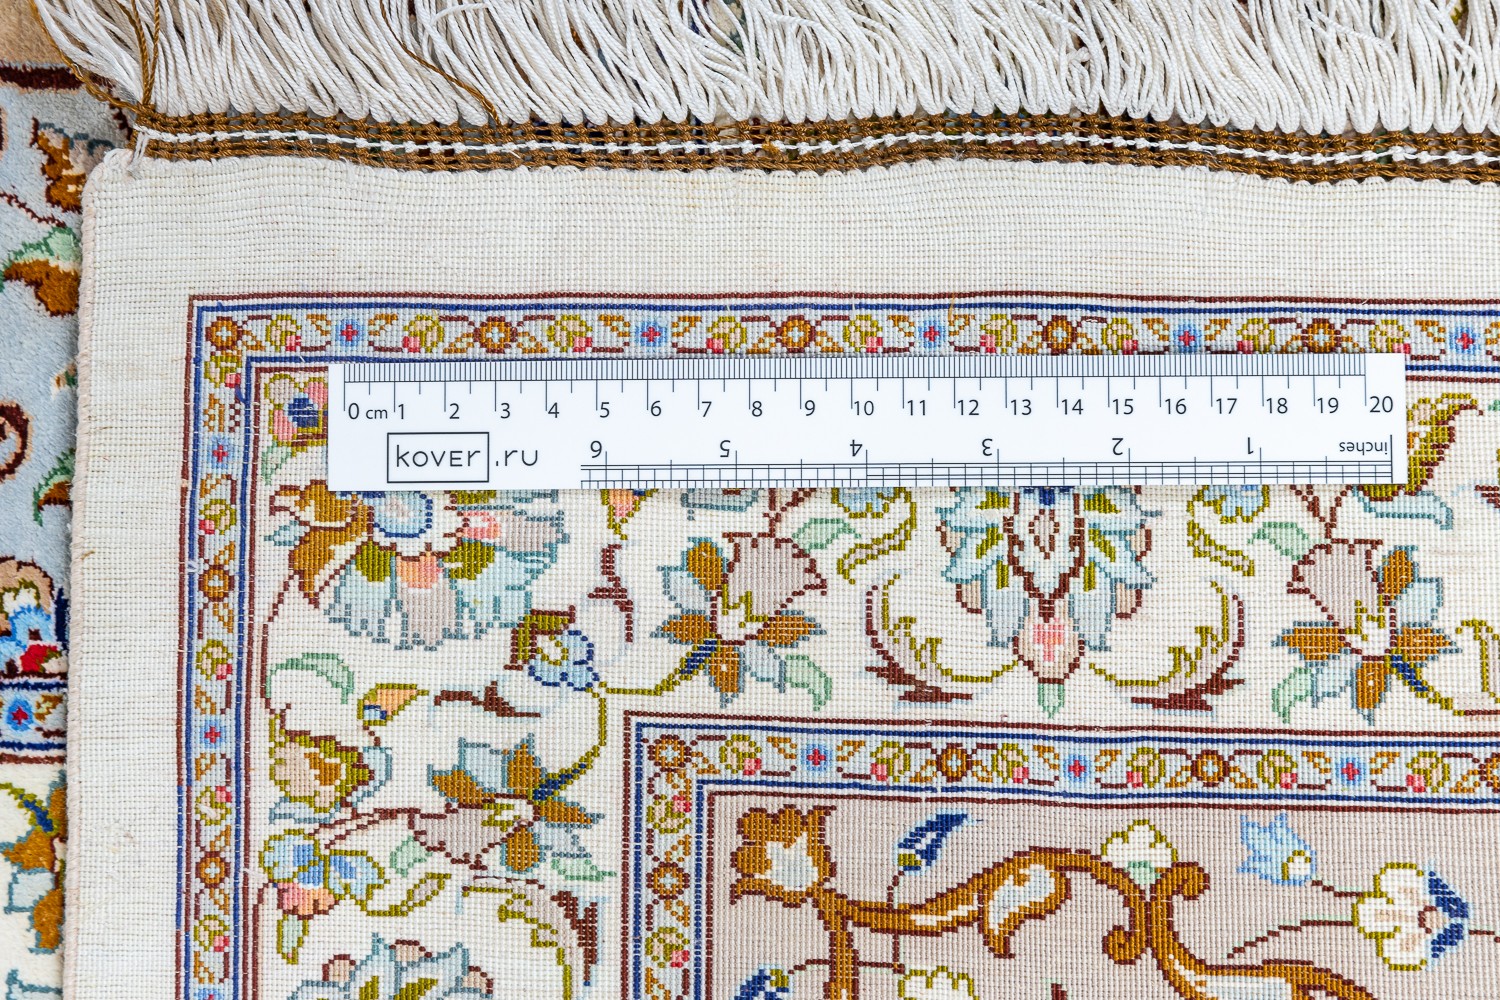 0 cm 1 2 3 4 5 6 7 8 9 10 11 12 13 14 15 16 17 18 19 20
6 5 4 3 2 1 inches
kover.ru